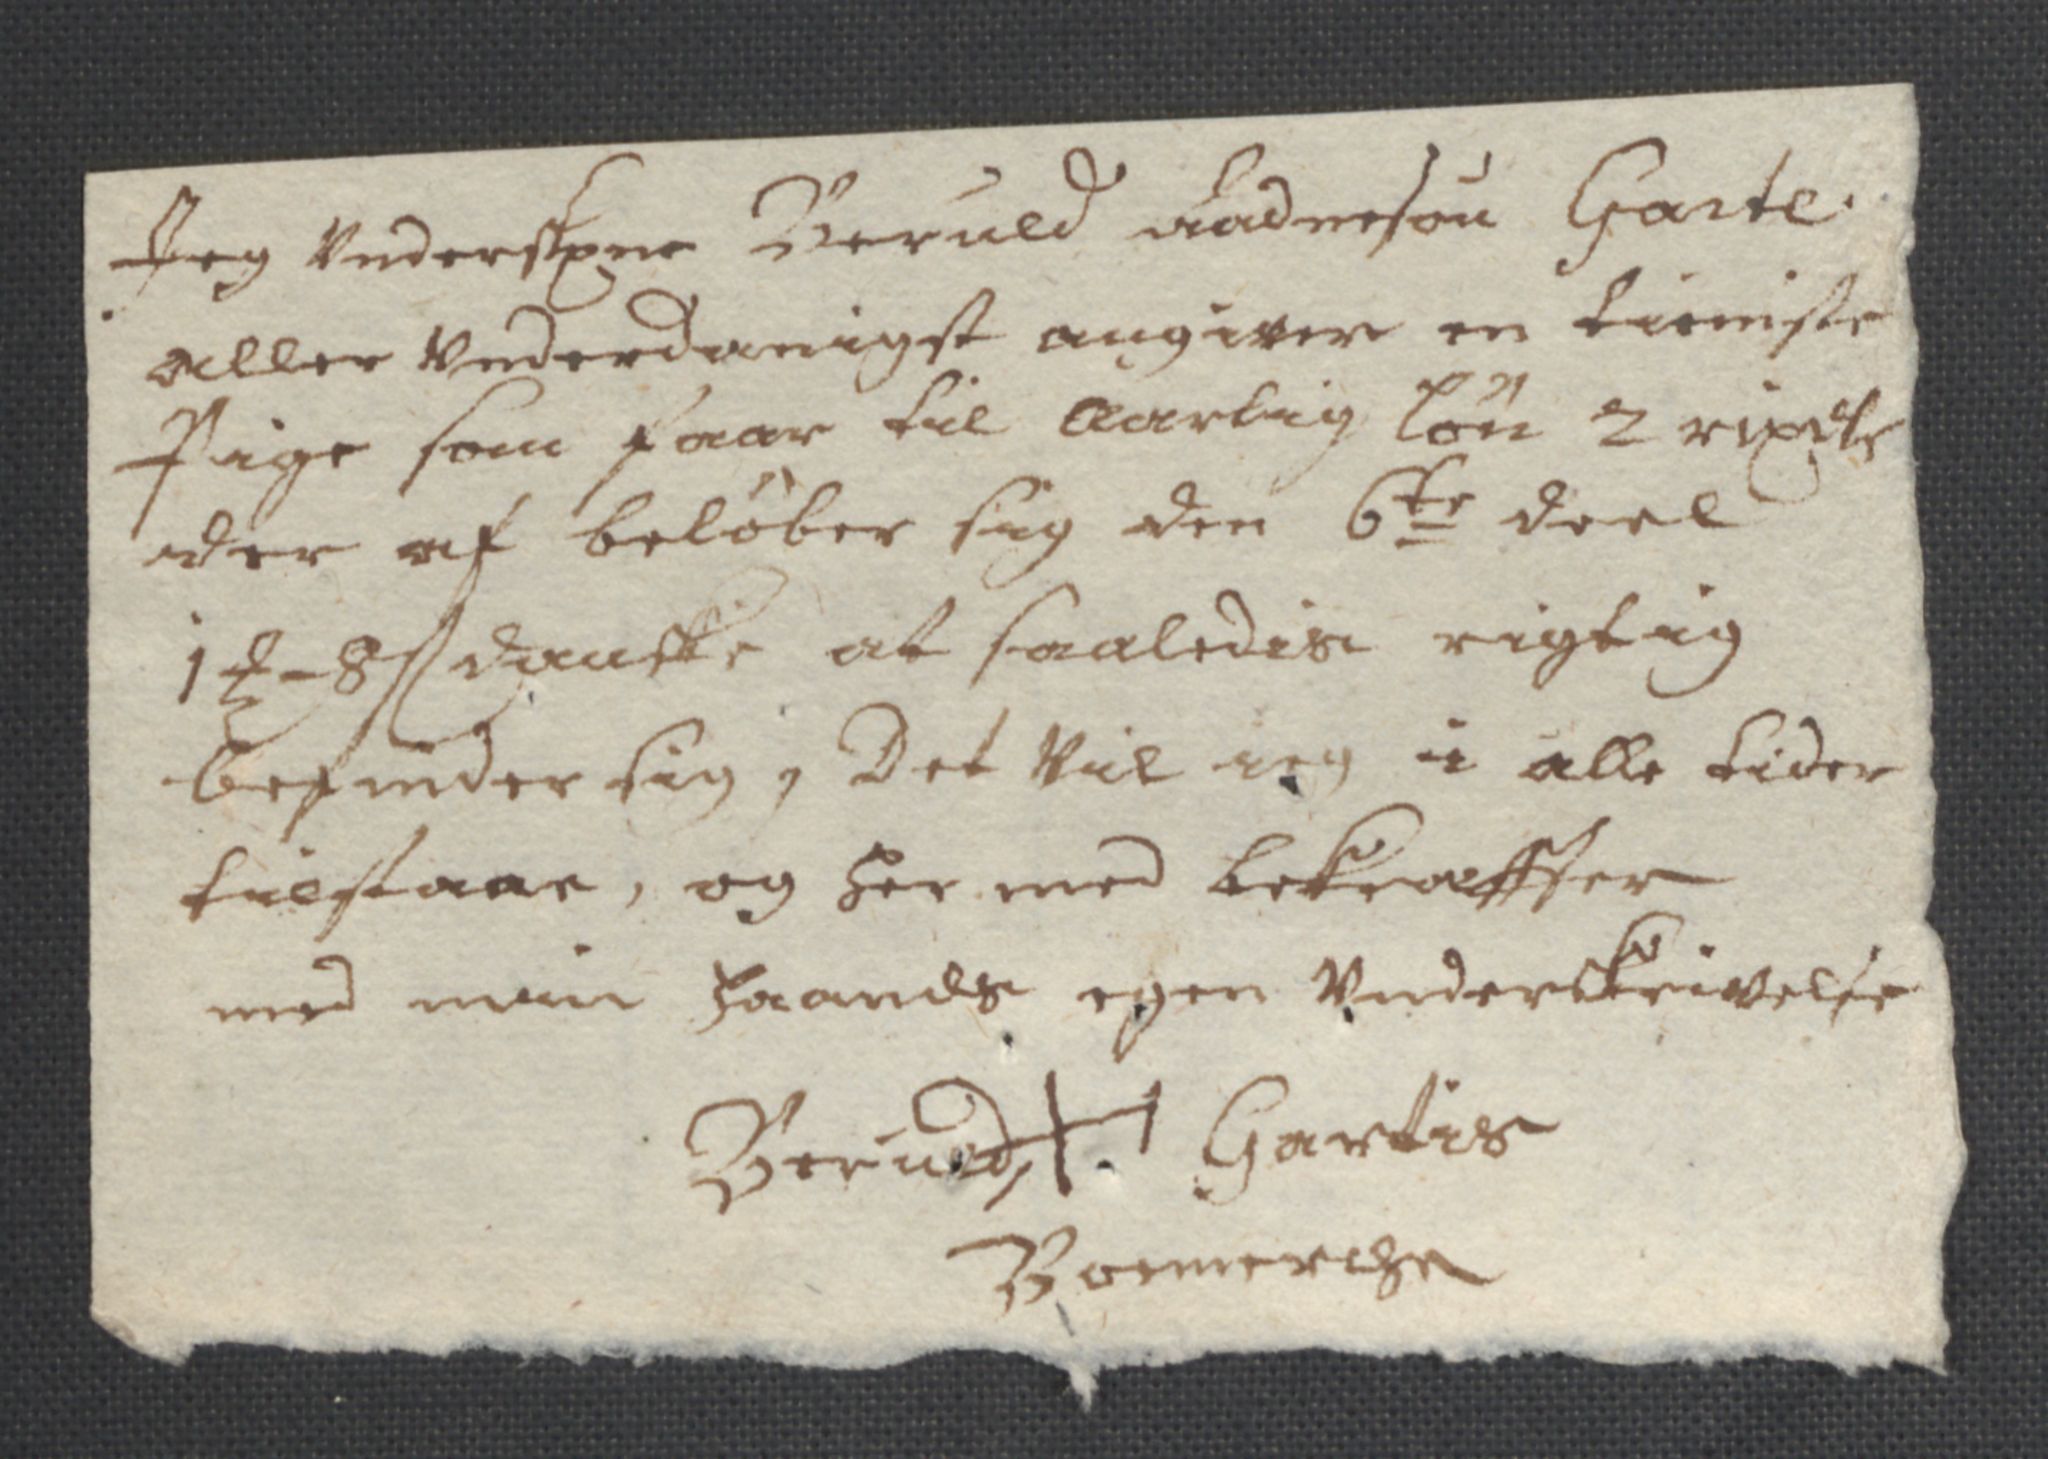 Jeg Underskrne Beruld Aadnesøn Garte
aller Underdanigst angiver en tieniste
Pige som faar til Aarlig løn 2 rixdlr
der af beløber sig den 6te deel
1 ₰ - 8 s danske at saaledis rigtig
befinder sig, Det Vil ieg i alle tider
tilstaae, og her med bekræffter
med min Haands egen Underskrivelse
Beruld Gartis
Boemerche